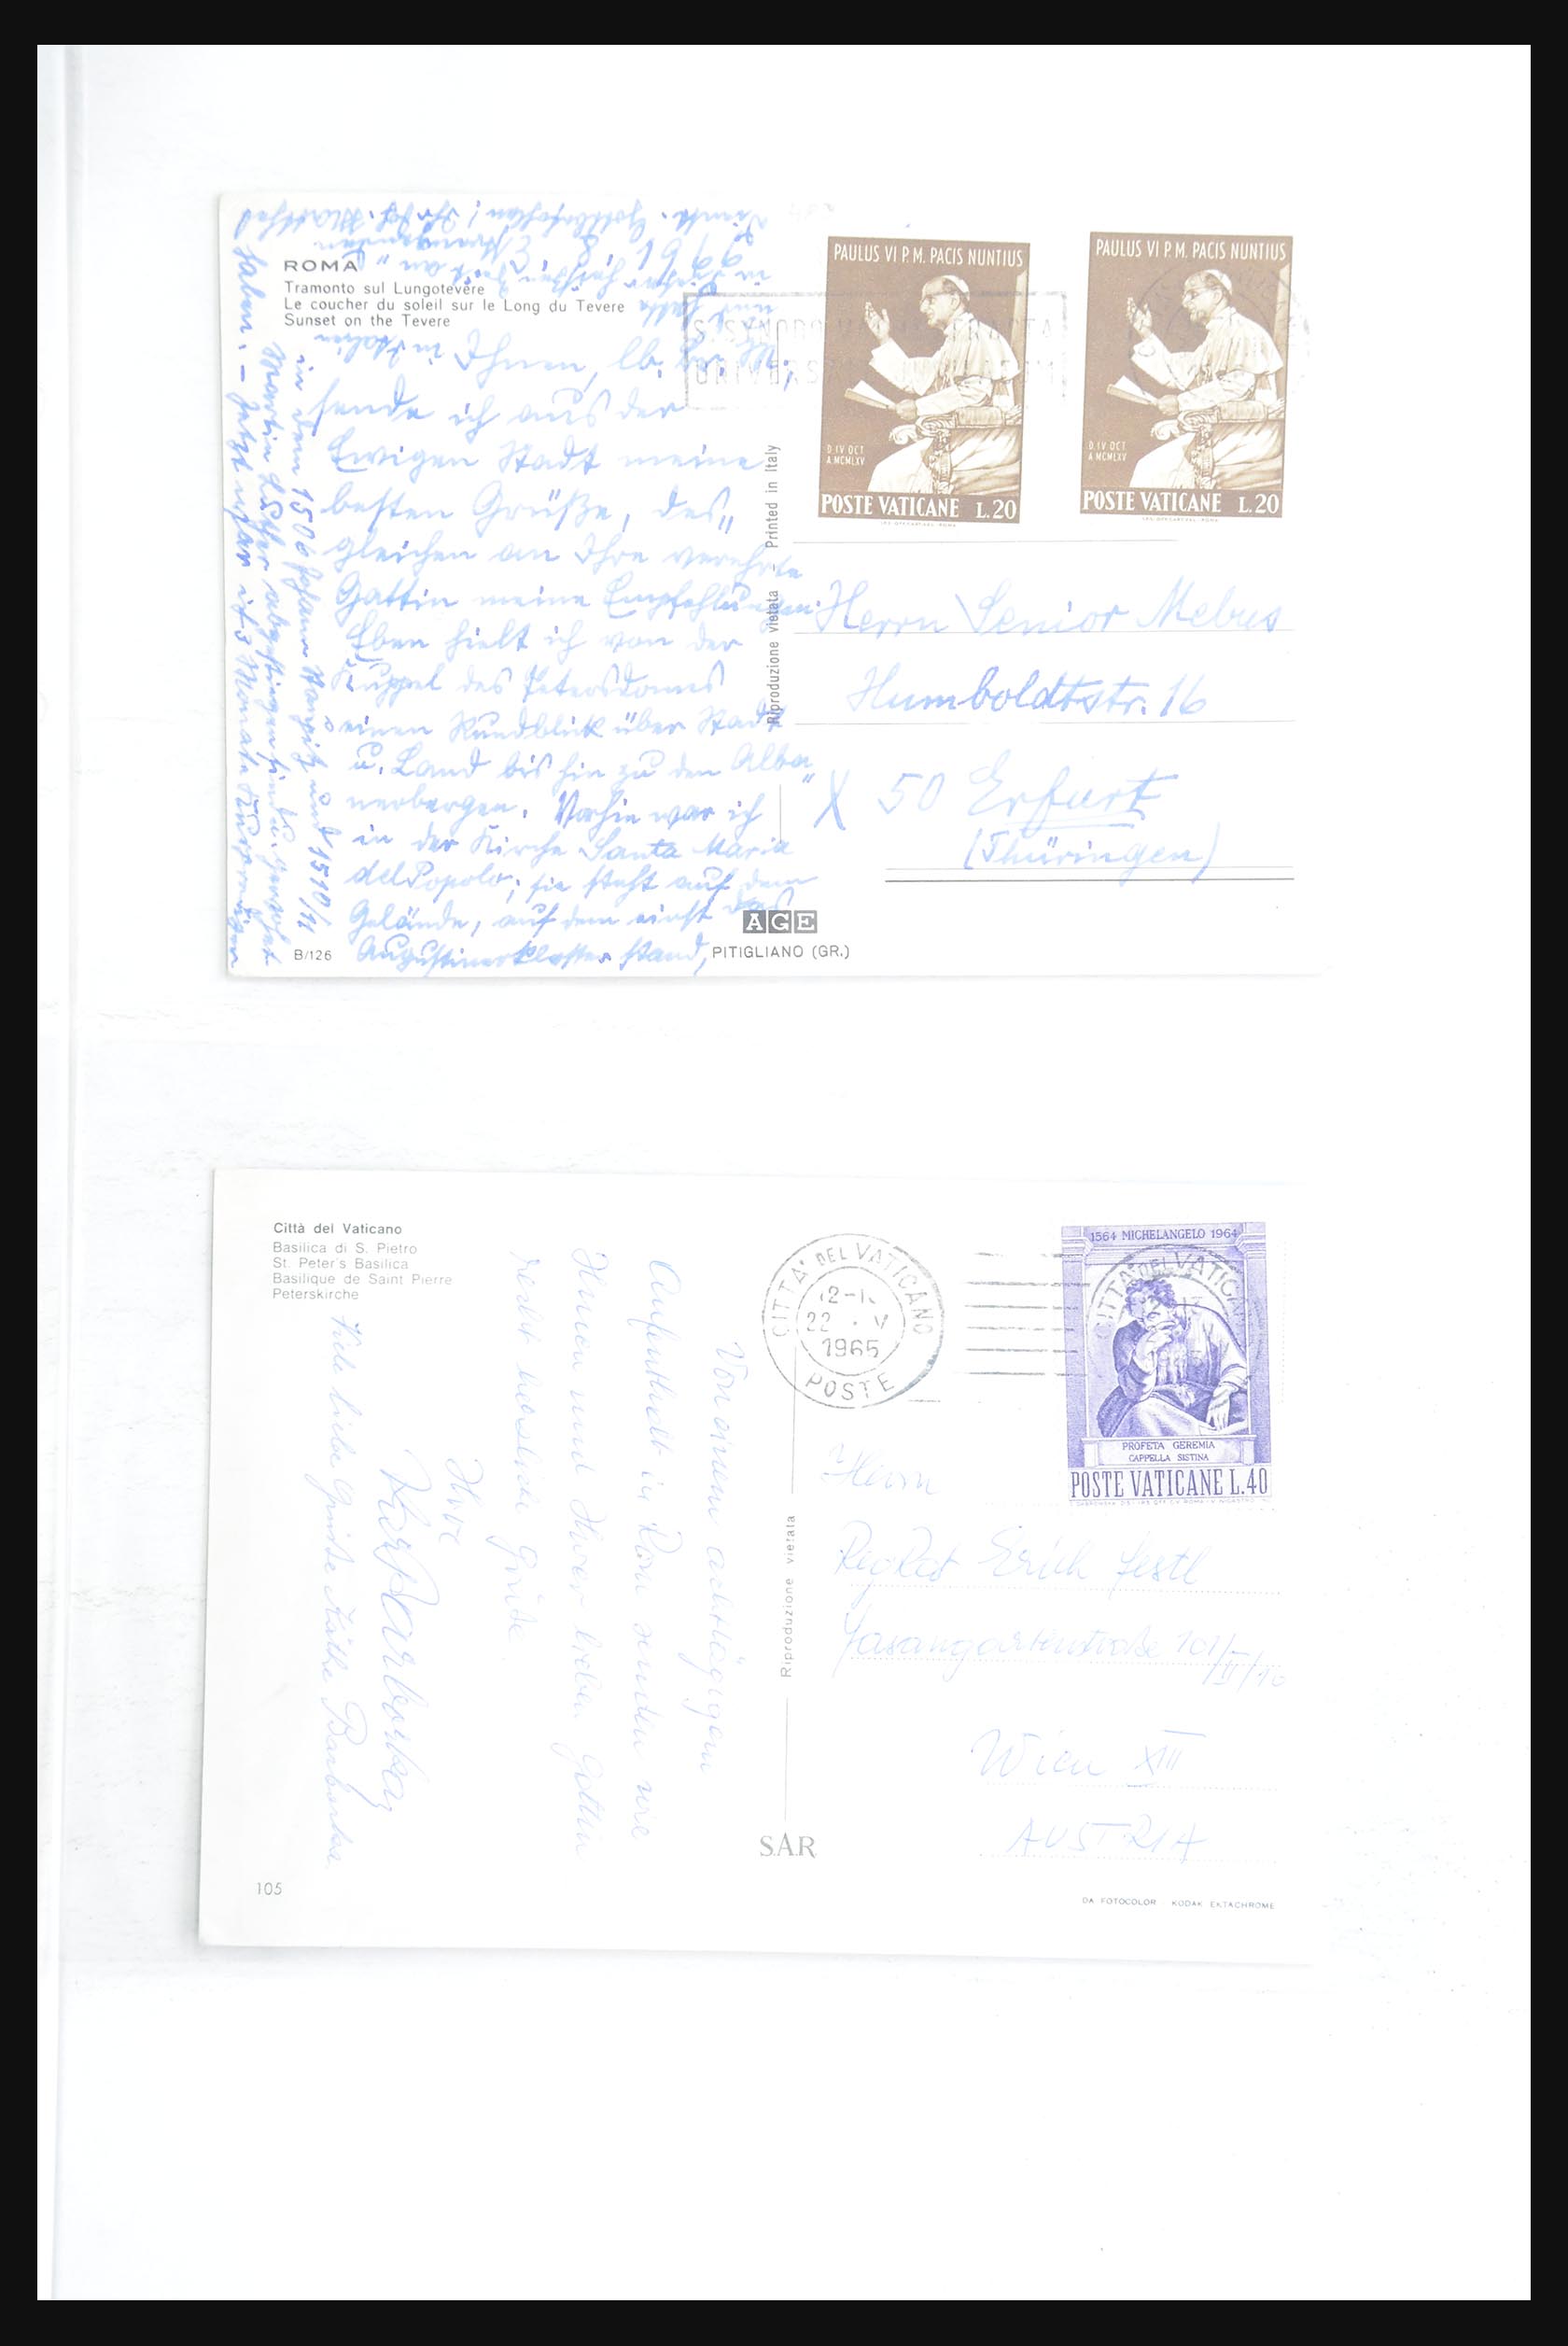 ROMA
Tramonto sul Lungotevere
Le coucher du soleil sur le Long du Tevere
Sunset on the Tevere
Ihnen, lb.
sende ich aus der
Ewigen Stadt meine
besten Grüße, des"
gleichen an Ihre verehrte
Gattin meine Empfehlungen.
Eben hielt ich von der
Kuppel des Petersdomes
einen Rundblick über Stadt
u. Land bis hin zu den Alba"
nerbergen. Vorhin war ich
in der Kirche Santa Maria
del Popolo; sie steht auf dem
Gelände, auf dem einst das
Augustinerkloster stand,
in dem 1506 Johann Staupitz und 1510/11
Martin Luther abgestiegen sind u. gewohnt
haben. – Jetzt war ich 3 Monate
B/126
Riproduzione vietata – Printed in Italy
AGE
PITIGLIANO (GR.)
PAULUS VI P.M. PACIS NUNTIUS
D. IV OCT
A. MCMLXV
POSTE VATICANE L.20
PAULUS VI P.M. PACIS NUNTIUS
D. IV OCT
A. MCMLXV
POSTE VATICANE L.20
Herrn Senior Mebus
Humboldtstr. 16
X 50 Erfurt
(Thüringen)
Città del Vaticano
Basilica di S. Pietro
St. Peter's Basilica
Basilique de Saint Pierre
Peterskirche
Von einem achttägigen
Aufenthalt in Rom senden wir
Ihnen und Ihrer lieben Gattin
recht herzliche Grüße.
Ihre
Viele liebe Grüße Käthe
105
Riproduzione vietata
S.A.R.
CITTA' DEL VATICANO
22 . V
1965
POSTE
1564 MICHELANGELO 1964
PROFETA GEREMIA
CAPPELLA SISTINA
POSTE VATICANE L.40
Herrn
RegRat Erich Festl
Fasangartenstraße 101/
Wien XII
AUSTRIA
DA FOTOCOLOR KODAK EKTACHROME